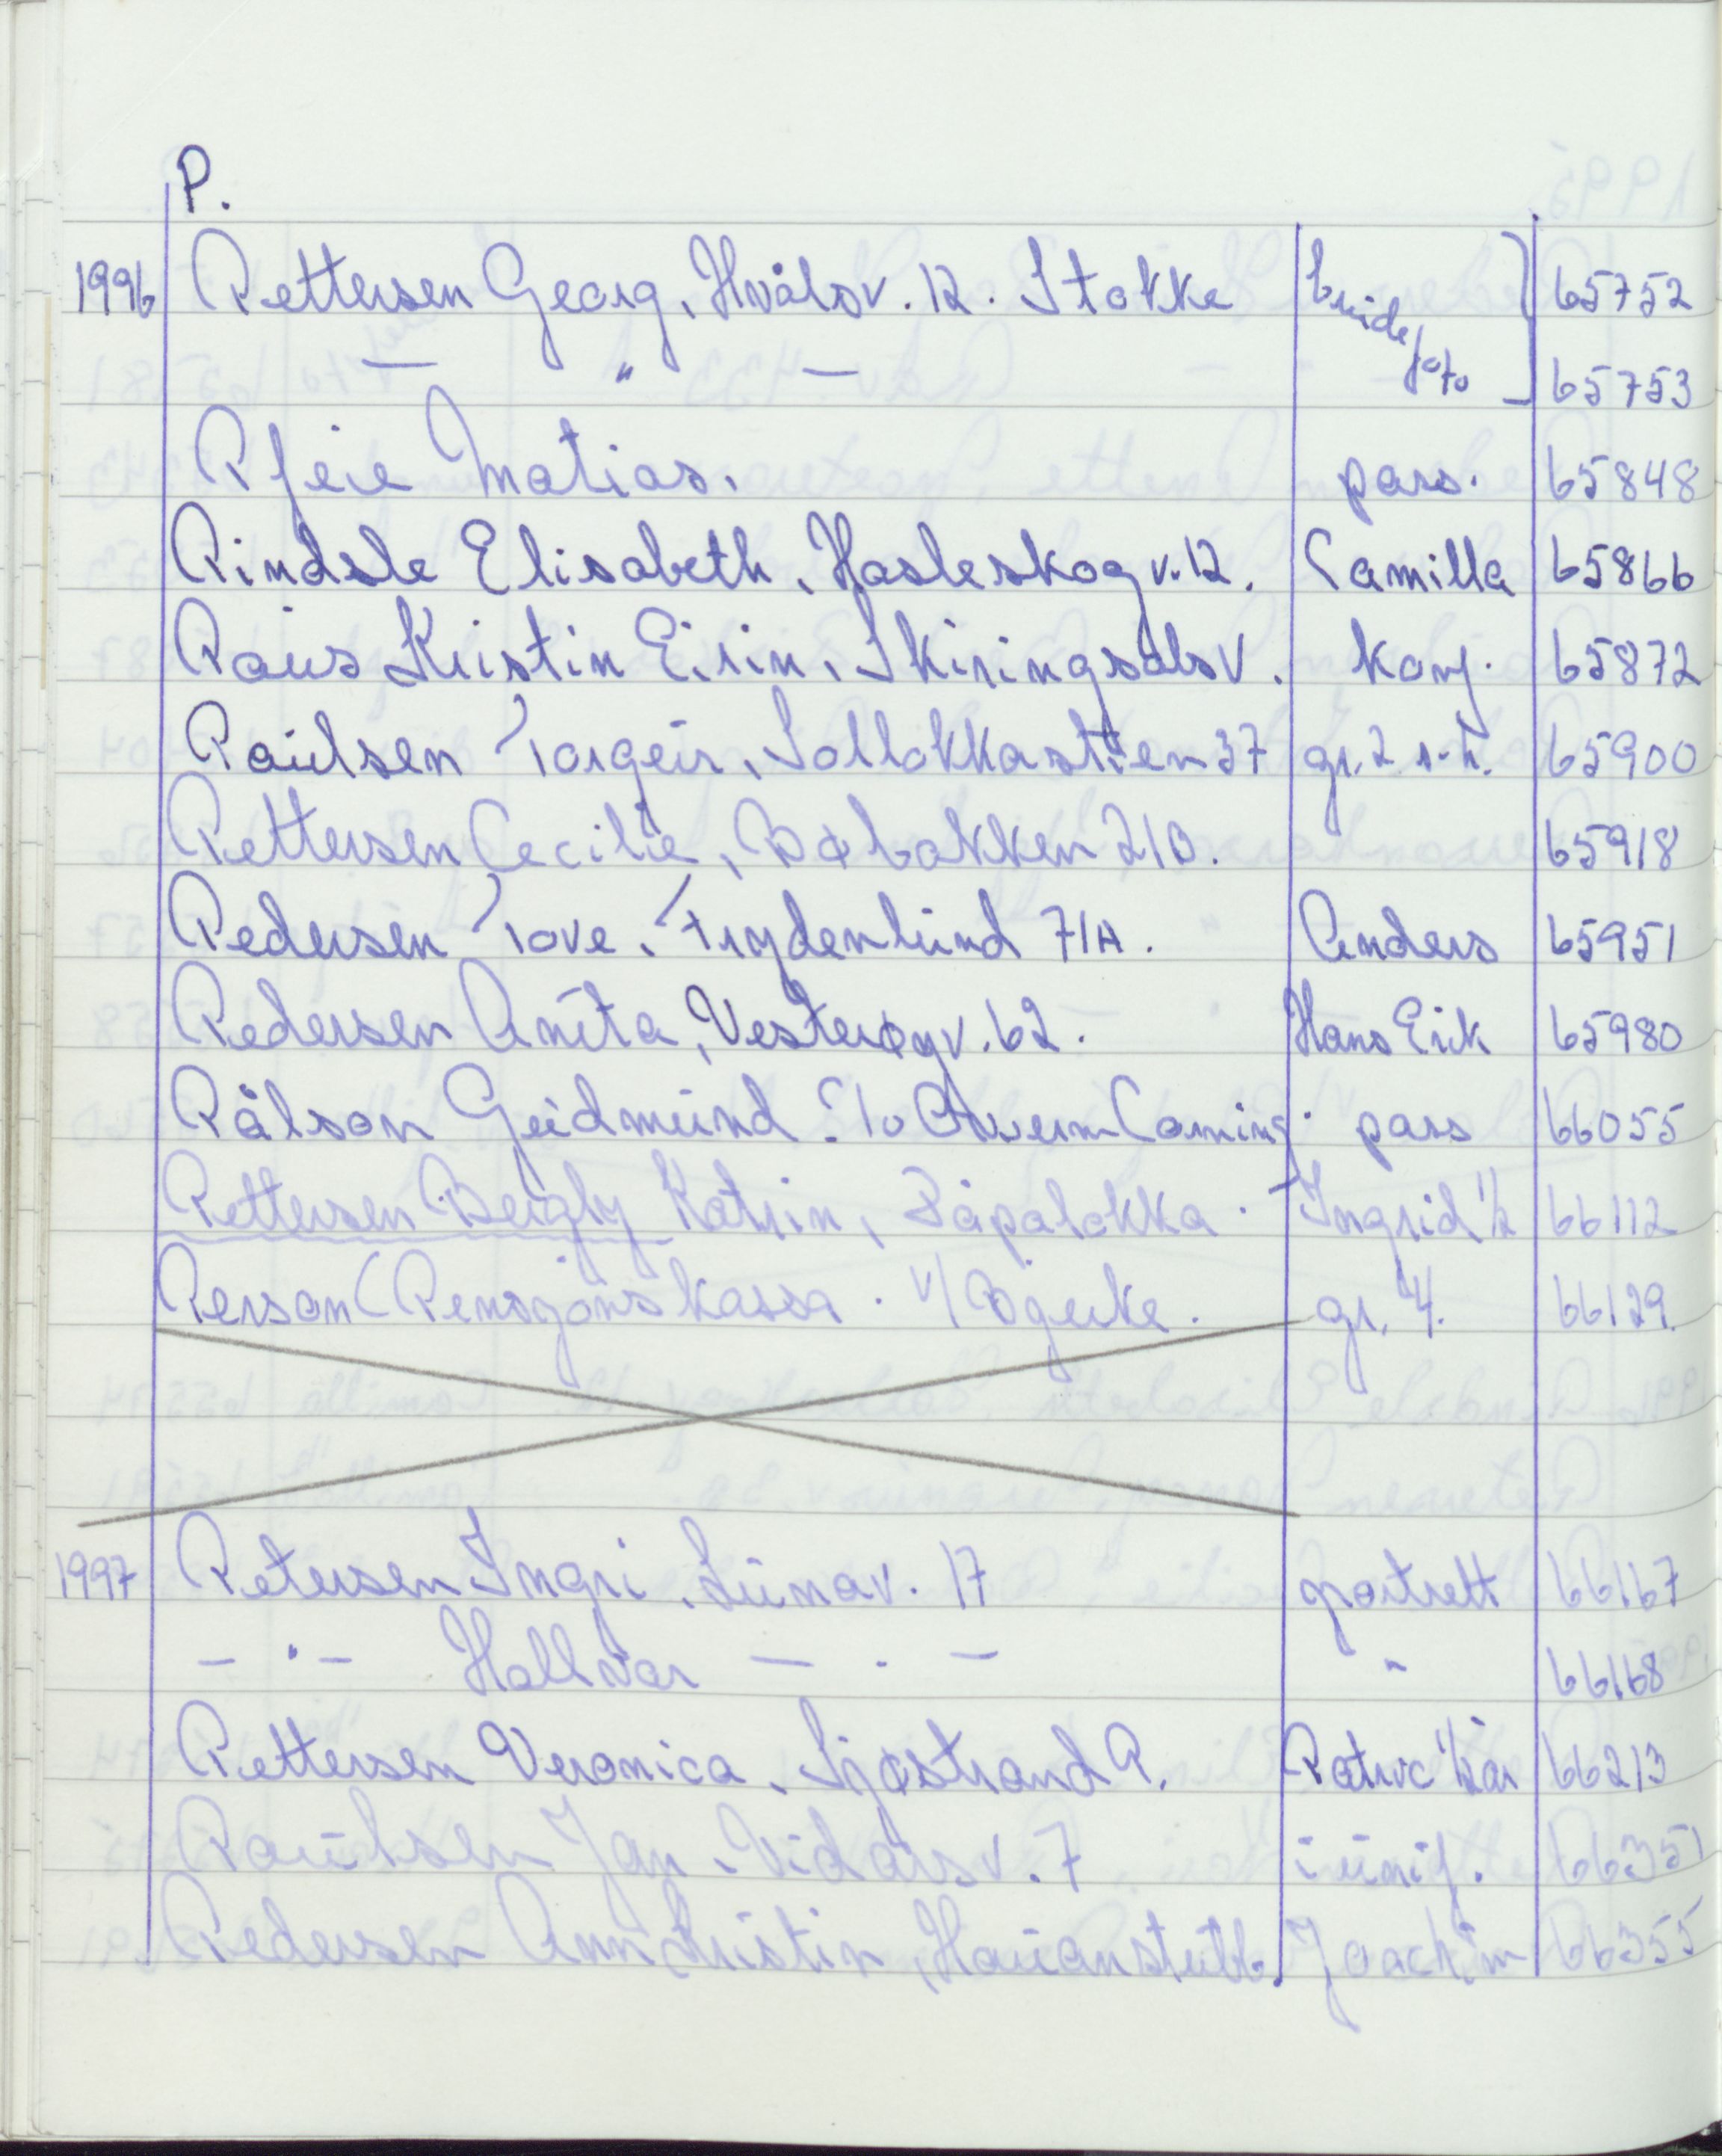 P.
1996 Pettersen Georg, Hvålsv. 12. Stokke brude foto } 65752
— " — 65753
Pfeie Matias. pass. 65848
Pindsle Elisabeth, Hasleskogv. 12. Camilla 65866
Paus Kristin Eirin, Skiringsalsv. konf. 65872
Paulsen Torgeir, Solløkkastien 37 gr. 2 s-h. 65900
Pettersen Cecilie, Bøbakken 21B. 65918
Pedersen Tove, Frydenlund 71A. Anders 65951
Pedersen Anita, Vesterøyv. 62. Hans Erik 65980
Pålson Gudmund C/o Owern Corning. pass 66055
Pettersen Bergby Katrin, Båpaløkka. Ingrid ½ 66112
Person (Pensjonskassa. v/ Bjerke. gr. 4. 66129.
1997 Petersen Ingri, Lunav. 17 portrett 66167
— " — Hallvar — . — " 66168
Pettersen Veronica, Sjøstrand 9. Patric ½ år 66213
Paulsen Jan, Vidarsv. 7 i unif. 66351
Pedersen Ann Kristin, Hauanstubb. Joachim 66355